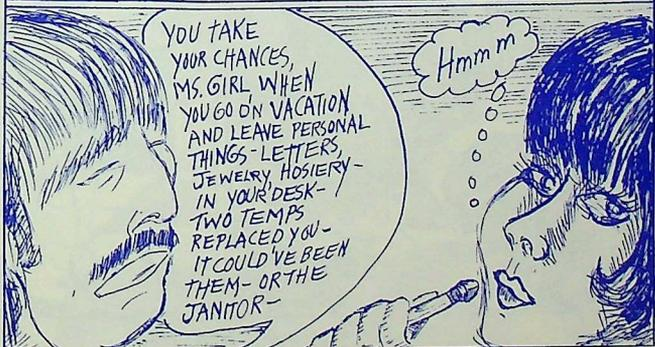 YOU TAKE
YOUR CHANCES,
MS. GIRL WHEN
YOU GO ON VACATION
AND LEAVE PERSONAL
THINGS - LETTERS,
JEWELRY, HOSIERY -
IN YOUR DESK -
TWO TEMPS
REPLACED YOU -
IT COULD'VE BEEN
THEM - OR THE
JANITOR -
Hmmm